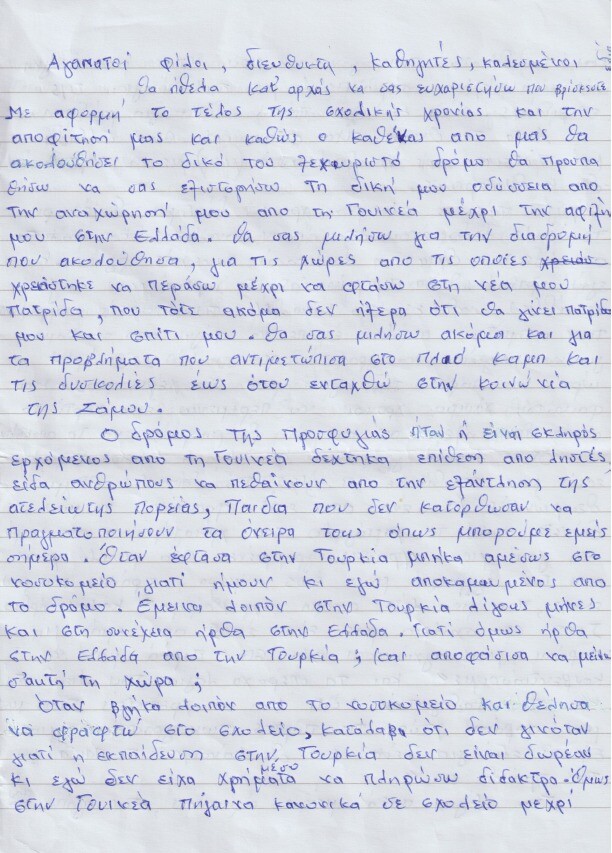 Αγαπητοί φίλοι, διευθυντή, καθηγητές, καλεσμένοι
θα ήθελα κατ' αρχάς να σας ευχαριστήσω που βρίσκεστε
Με αφορμή το τέλος της σχολικής χρονίας και την
αποφίτησή μας και καθώς ο καθένας απο μας θα
ακολουθήσει το δικό του ξεχωριστό δρόμο θα προσπα
θήσω να σας εξιστορήσω τη δική μου οδύσσεια απο
την αναχώρησή μου απο τη Γουινέα μέχρι την αφιξή
μου στην Ελλάδα. θα σας μιλήσω για την διαδρομή
που ακολούθησα, για τις χώρες απο τις οποίες
χρειάστηκε να περάσω μέχρι να φτάσω στη νέα μου
πατρίδα, που τότε ακόμα δεν ήξερα ότι θα γίνει πατρίδα
μου και σπίτι μου. θα σας μιλήσω ακόμα και για
τα προβλήματα που αντιμετώπισα στο καμπ και
τις δυσκολίες έως ότου ενταχθώ στην κοινωνία
της Σάμου.
Ο δρόμος της προσφυγιάς ήταν ή είναι σκληρός
ερχόμενος απο τη Γουινέα δέχτηκα επίθεση απο ληστές,
είδα ανθρώπους να πεθαίνουν απο την εξάντληση της
ατελείωτης πορείας, Παιδια που δεν κατόρθωσαν να
πραγματοποιήσουν τα όνειρα τους όπως μπορούμε εμείς
σήμερα. Όταν έφτασα στην Τουρκία μπήκα αμέσως στο
νοσοκομείο γιατί ήμουν κι εγώ αποκαμωμένος απο
το δρόμο. Έμεινα λοιπόν στην Τουρκία λίγους μήνες
και στη συνέχεια ήρθα στην Ελλάδα. Γιατί όμως ήρθα
στην Ελλάδα απο την Τουρκία; και αποφάσισα να μείνω
σ'αυτή τη χώρα;
Όταν βγήκα λοιπόν απο το νοσοκομείο και θέλησα
να γραφτώ στο σχολείο, κατάλαβα ότι δεν γινόταν
γιατί η εκπαίδευση στην Τουρκία δεν είναι δωρέαν
κι εγώ δεν είχα χρήματα να πληρώσω δίδακτρα. Όμως
στην Γουινέα πήγαινα κανονικά σε σχολείο μεχρί